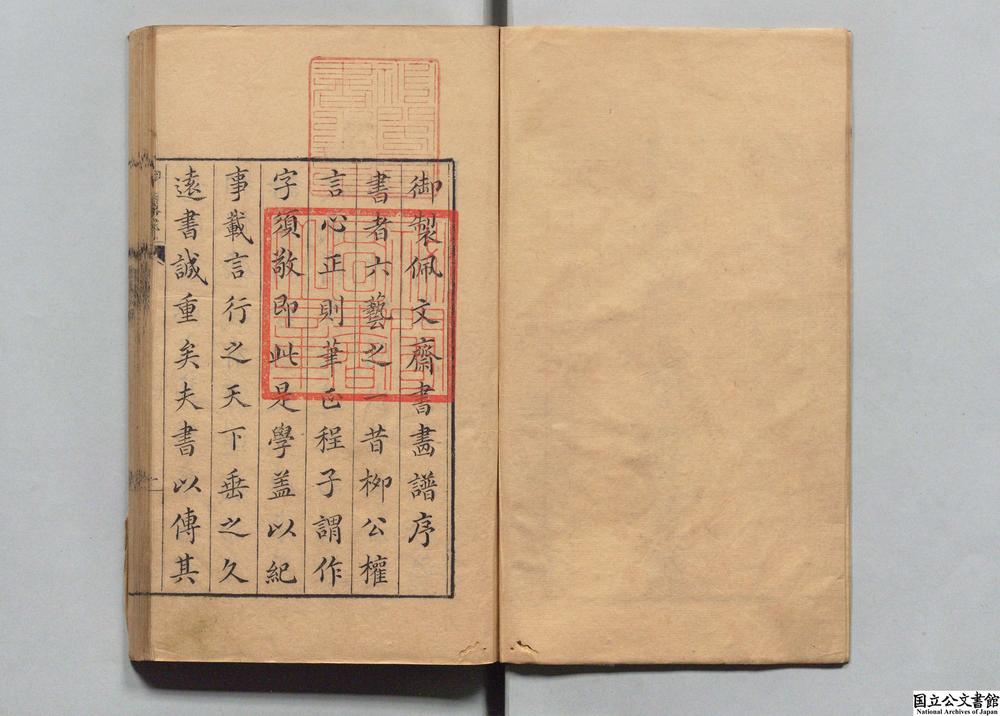 御製佩文齋書畫譜序
書者六藝之一昔柳公權
言心正則筆正程子謂作
字須敬即此是學盖以紀
事載言行之天下垂之久
遠書誠重矣夫書以傳其
国立公文書館
National Archives of Japan